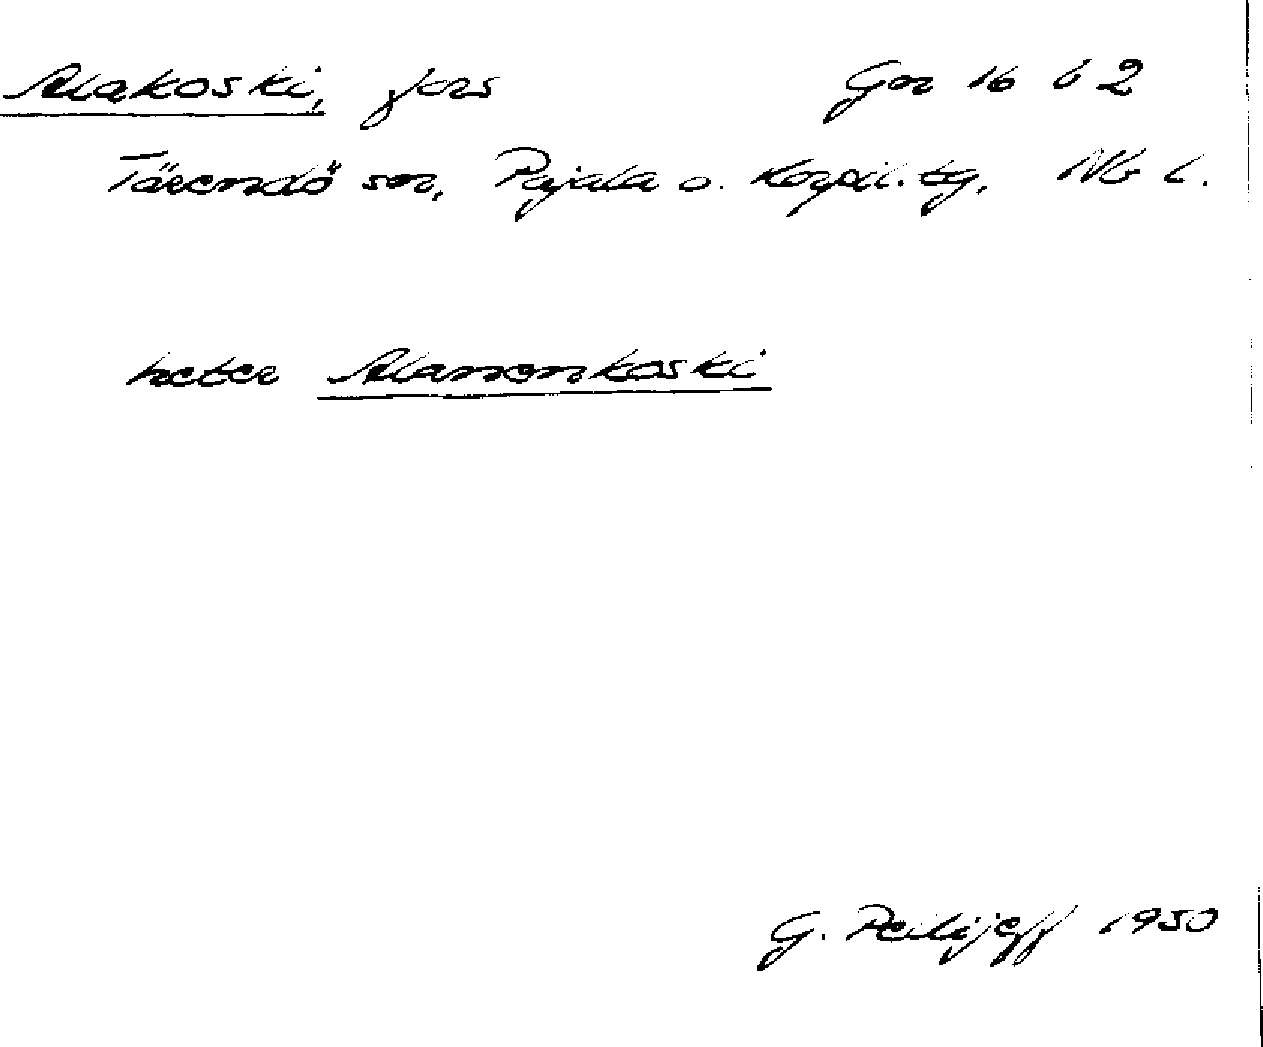 Alakoski, fors Gn 16 b 2
Tärendö sn, Pajala o. Korpil. tg, Nb L.
heter Alanenkoski
G. Pellijeff 1950